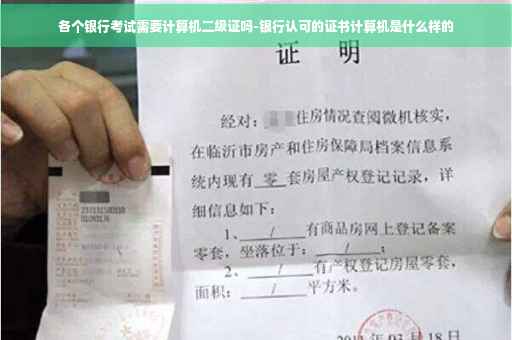 各个银行考试需要计算机二级证吗-银行认可的证书计算机是什么样的
证 明
经对：住房情况查阅微机核实，
在临沂市房产和住房保障局档案信息系
统内现有 零 套房屋产权登记记录，详
细信息如下：
1、 / 有商品房网上登记备案
零套，坐落位于： / ；
2、 / 有产权登记房屋零套，
面积： / 平方米。
03月18日